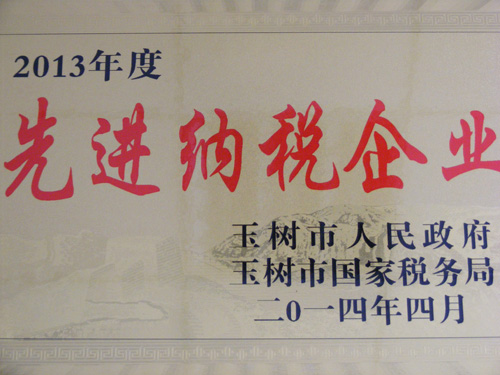 2013年度
先进纳税企业
玉树市人民政府
玉树市国家税务局
二0一四年四月